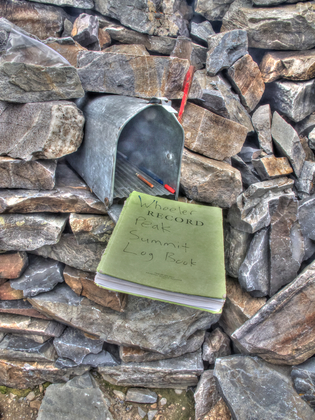 Wheeler
RECORD
Peak
Summit
Log Book